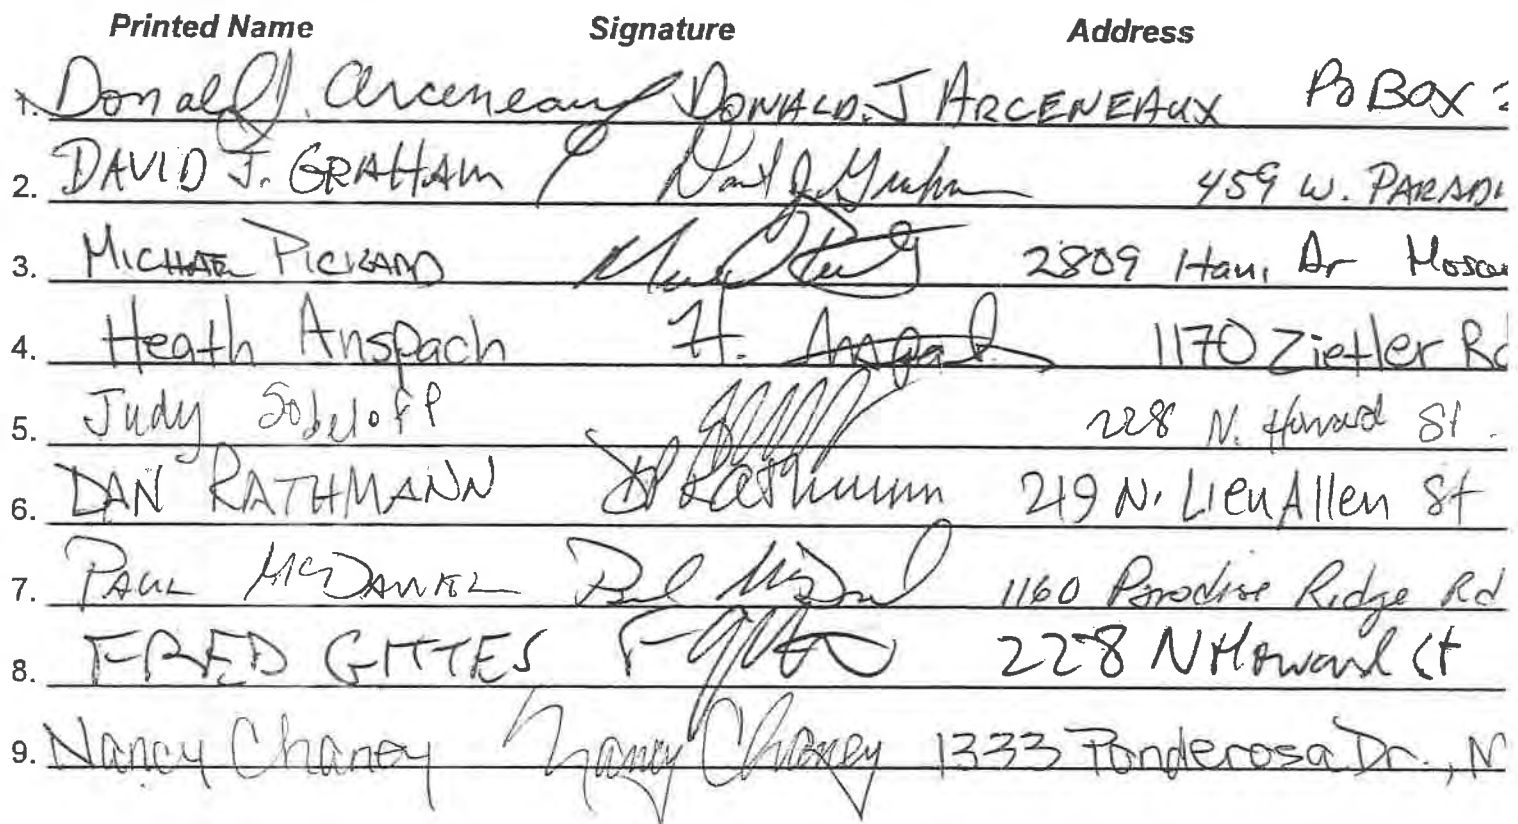 Printed Name Signature Address
1. Donald J. Arceneaux DONALD. J ARCENEAUX PO BOX 2
2. DAVID J. GRAHAM David J. Graham 459 W. PARADI
3. MICHAEL PICKARD 2809 Dr Mosco
4. Heath Anspach H. Anspach 1170 Zietler Rd
5. Judy Sobeloff 228 N. Howard St.
6. DAN RATHMANN D Rathmann 219 N. Lieuallen St
7. PAUL MCDANIEL Paul McDaniel 1160 Paradise Ridge Rd
8. FRED GITTES 228 N Howard St
9. Nancy Chaney Nancy Chaney 1333 Ponderosa Dr., M